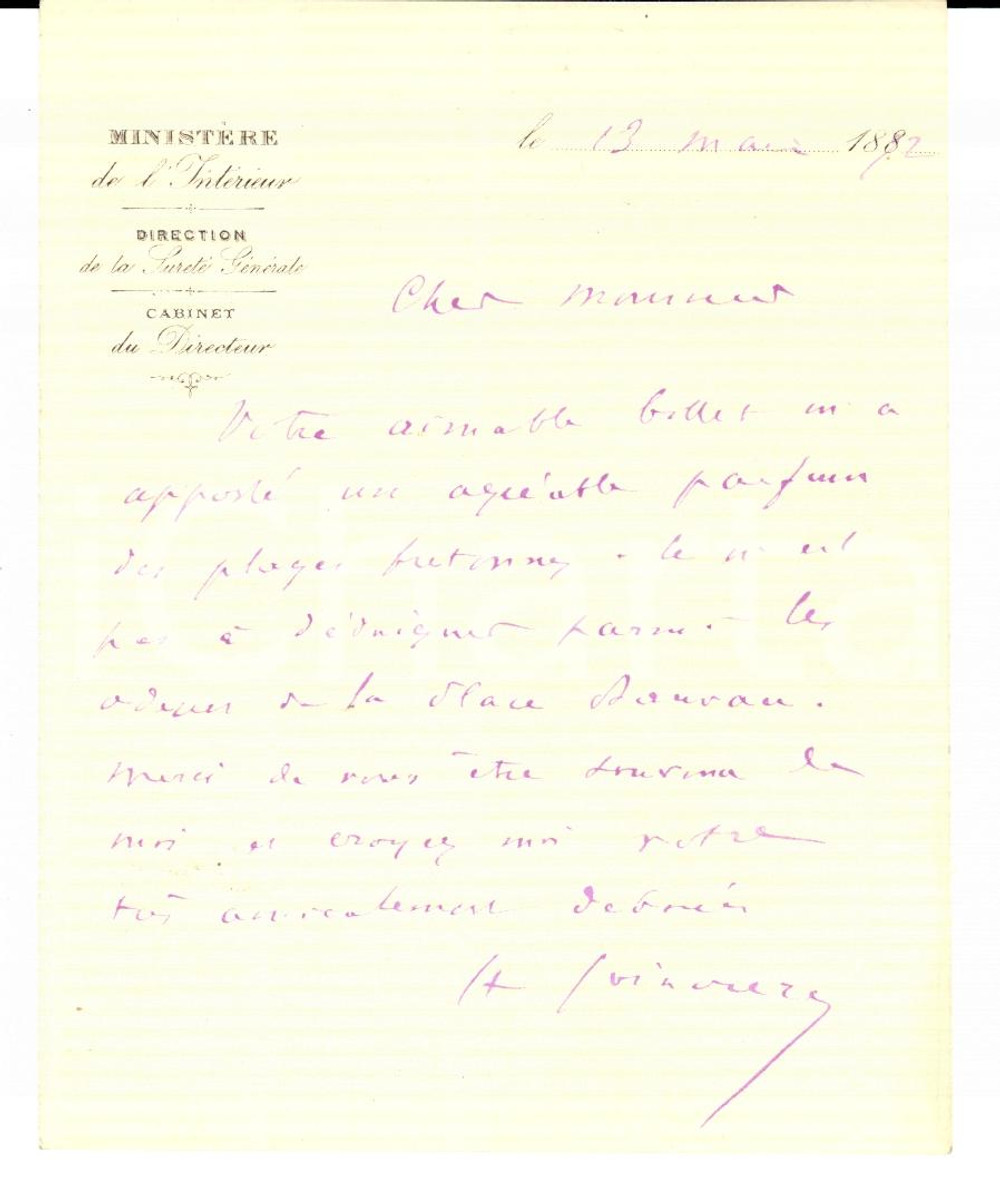 MINISTÈRE
de l'Intérieur
DIRECTION
de la Sureté Générale
CABINET
du Directeur
le 13 mars 1892
Cher Monsieur
Votre aimable billet m'a
apporté un agréable parfum
des plages bretonnes. Ce n'est
pas à dédaigner parmi les
odeurs de la Place Beauvau.
Merci de vous être souvenu de
moi et croyez moi votre
très amicalement
H